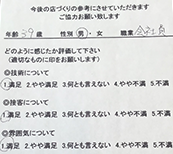 今後の店づくりの参考にさせていただきます
ご協力お願い致します
年齢 39 歳 性別 男・女 職業 会社員
どのように感じたか評価して下さい
(適切なものに印をお願いします)
◎技術について
1.満足 2.やや満足 3.何とも言えない 4.やや不満 5.不満
◎接客について
1.満足 2.やや満足 3.何とも言えない 4.やや不満 5.不満
◎雰囲気について
1.満足 2.やや満足 3.何とも言えない 4.やや不満 5.不満